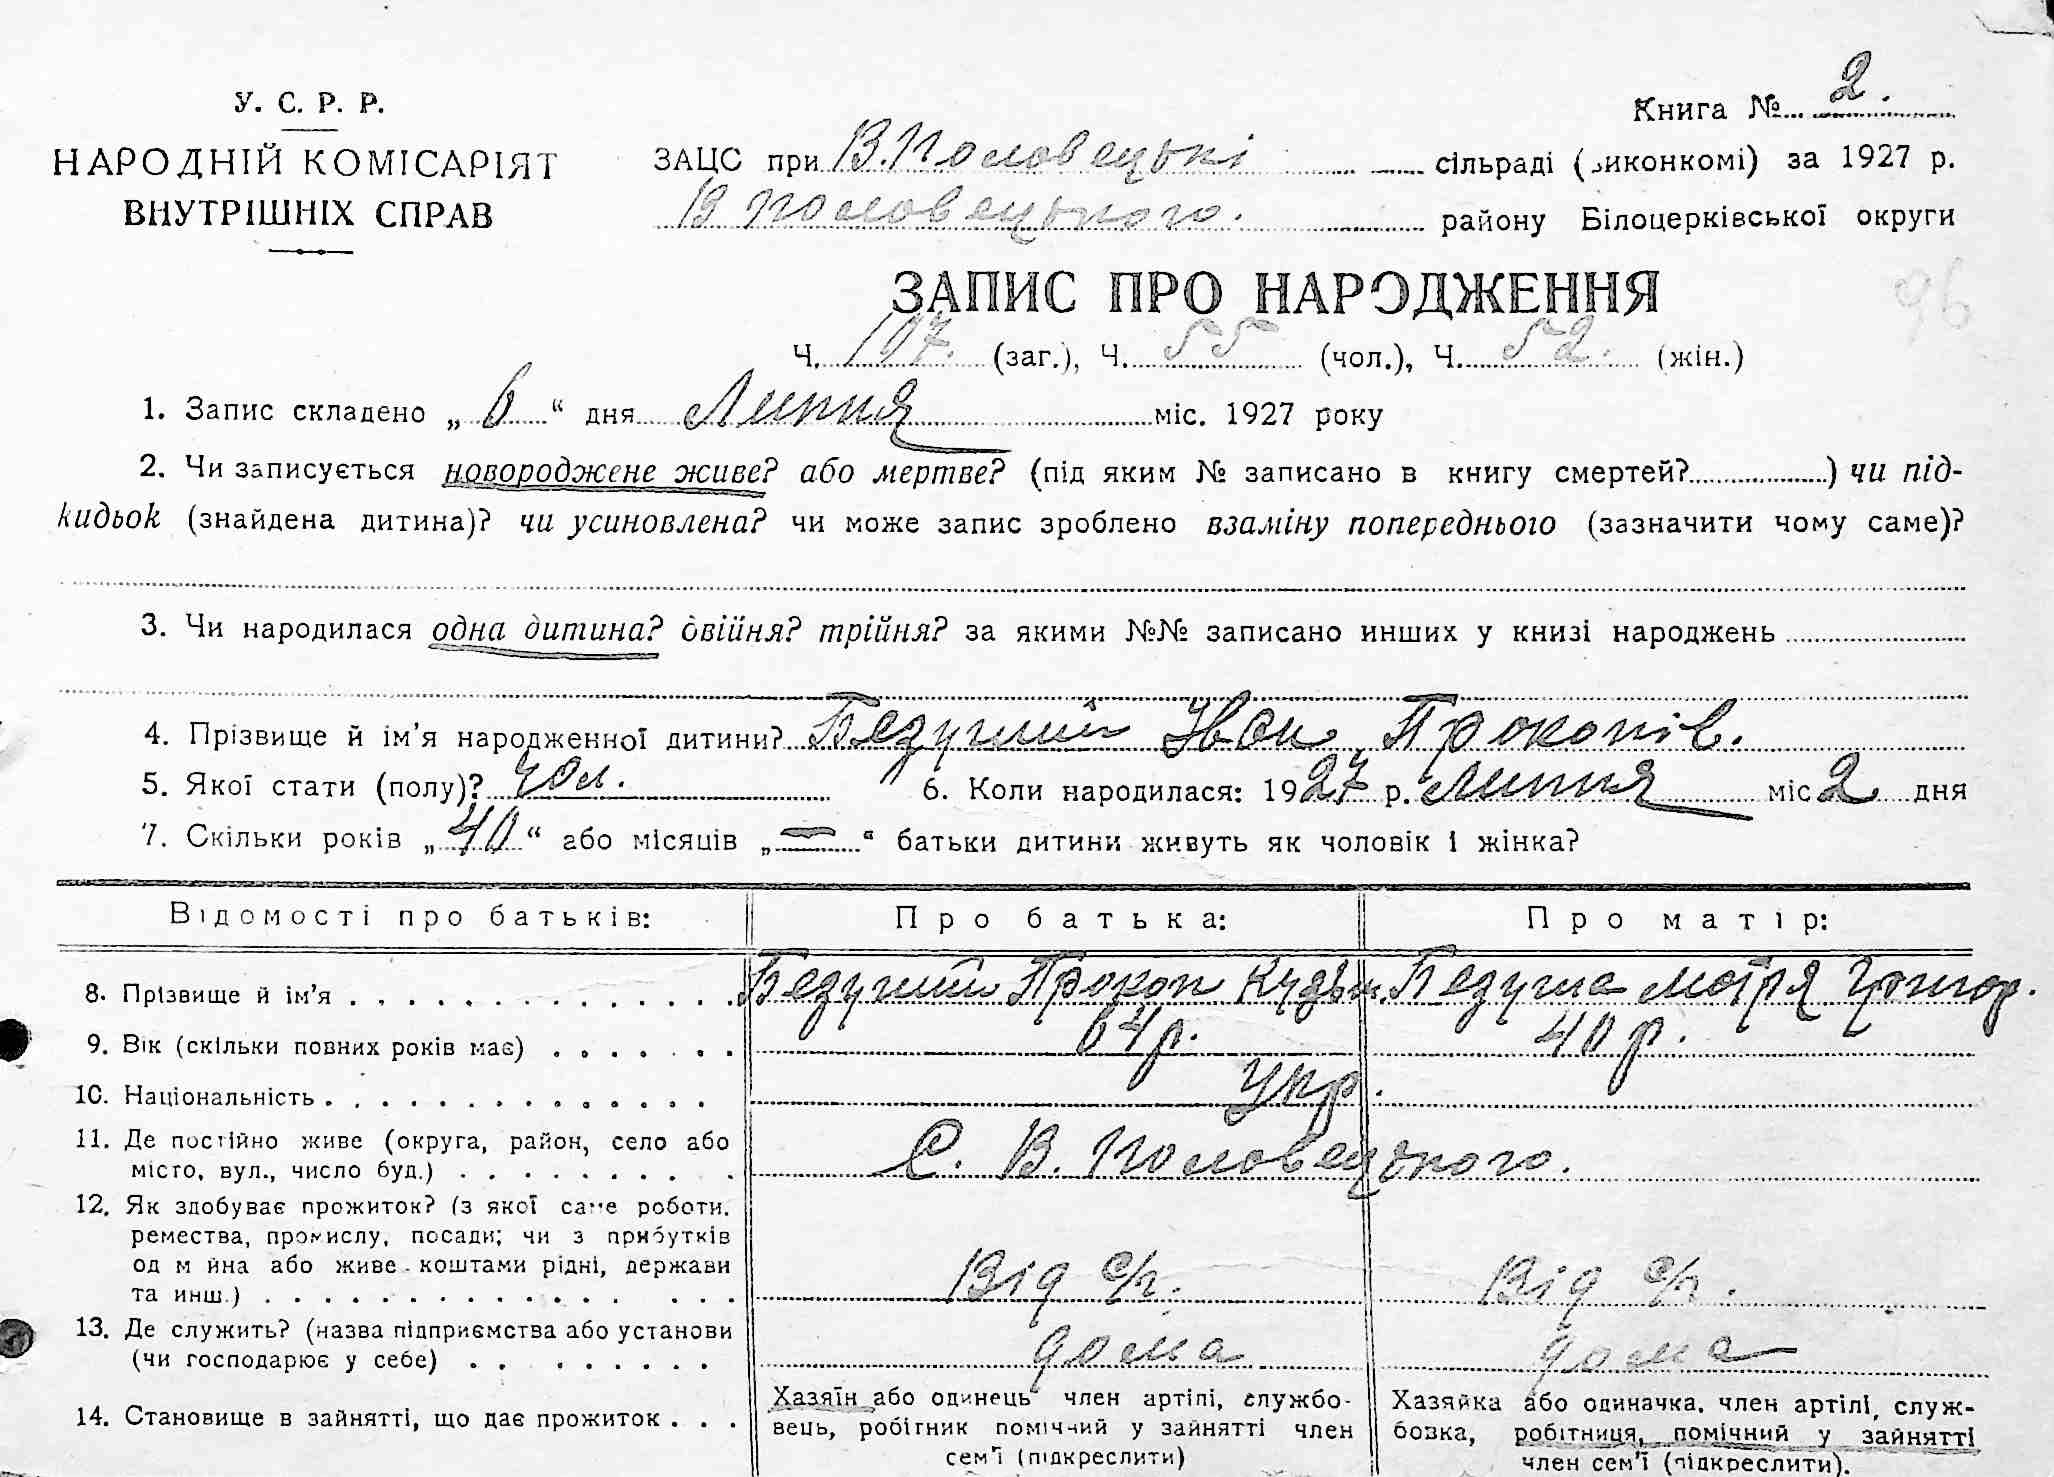 У. С. Р. Р.
НАРОДНІЙ КОМІСАРІЯТ
ВНУТРІШНІХ СПРАВ
Книга № 2.
ЗАЦС при В. Половецькі сільраді (виконкомі) за 1927 р.
В Половецького. району Білоцерківської округи
ЗАПИС ПРО НАРОДЖЕННЯ
96
Ч. 107. (заг.), Ч. 55 (чол.), Ч. 52. (жін.)
1. Запис складено „ 6 “ дня Липня міс. 1927 року
2. Чи записується новороджене живе? або мертве? (під яким № записано в книгу смертей? ) чи під-
кидьок (знайдена дитина)? чи усиновлена? чи може запис зроблено взаміну попереднього (зазначити чому саме)?
3. Чи народилася одна дитина? двійня? трійня? за якими №№ записано инших у книзі народжень
4. Прізвище й ім’я народженної дитини? Бедугий Іван Прокопів.
5. Якої стати (полу)? чол. 6. Коли народилася: 1927 р. Липня міс 2 дня
7. Скільки років „ 40 “ або місяців „ — “ батьки дитини живуть як чоловік і жінка?
Відомості про батьків: Про батька: Про матір:
8. Прізвище й ім’я . . . . . . . . . . . . . . Бедугий Прокоп Кузьм. Бедуга Мотря Григор.
9. Вік (скільки повних років має) . . . . . . . 64 р. 40 р.
10. Національність . . . . . . . . . . . . . . Укр.
11. Де постійно живе (округа, район, село або
місто, вул., число буд.) . . . . . . . . . . С. В. Половецького.
12. Як здобуває прожиток? (з якої саме роботи,
ремества, промислу, посади; чи з прибутків
од м йна або живе коштами рідні, держави
та инш.) . . . . . . . . . . . . . . . . Від с/г. Від с/г.
13. Де служить? (назва підприємства або установи
(чи господарює у себе) . . . . . . . . . дома дома
14. Становище в зайнятті, що дає прожиток . . . Хазяїн або одинець член артілі, службо- Хазяйка або одиначка, член артілі, служ-
вець, робітник помічний у зайнятті член бовка, робітниця, помічний у зайнятті
сем’ї (підкреслити) член сем’ї (підкреслити).